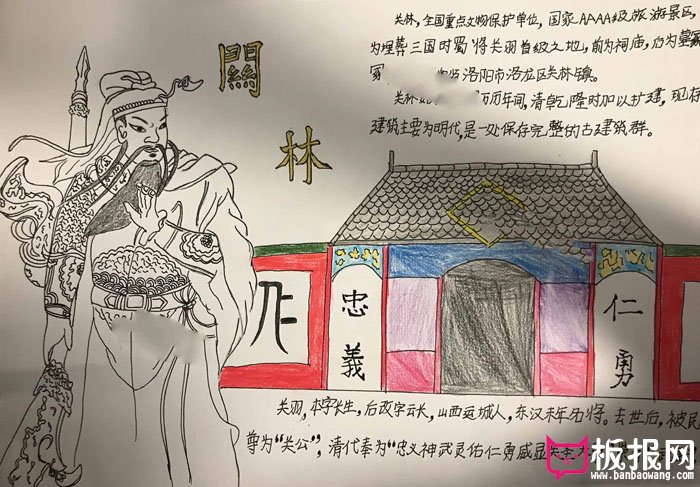 关林,全国重点文物保护单位,国家AAAA级旅游景区,
为埋葬三国时蜀将关羽首级之地,前为祠庙,后为墓冢
洛阳市洛龙区关林镇。
关林 万历年间,清乾隆时加以扩建,现存
建筑主要为明代,是一处保存完整的古建筑群。
關
林
忠義
仁勇
关羽,本字长生,后改字云长,山西运城人,东汉末年名将。去世后,被民
尊为“关公”,清代奉为“忠义神武灵佑仁勇威显关圣大
板报网
www.banbaowang.com